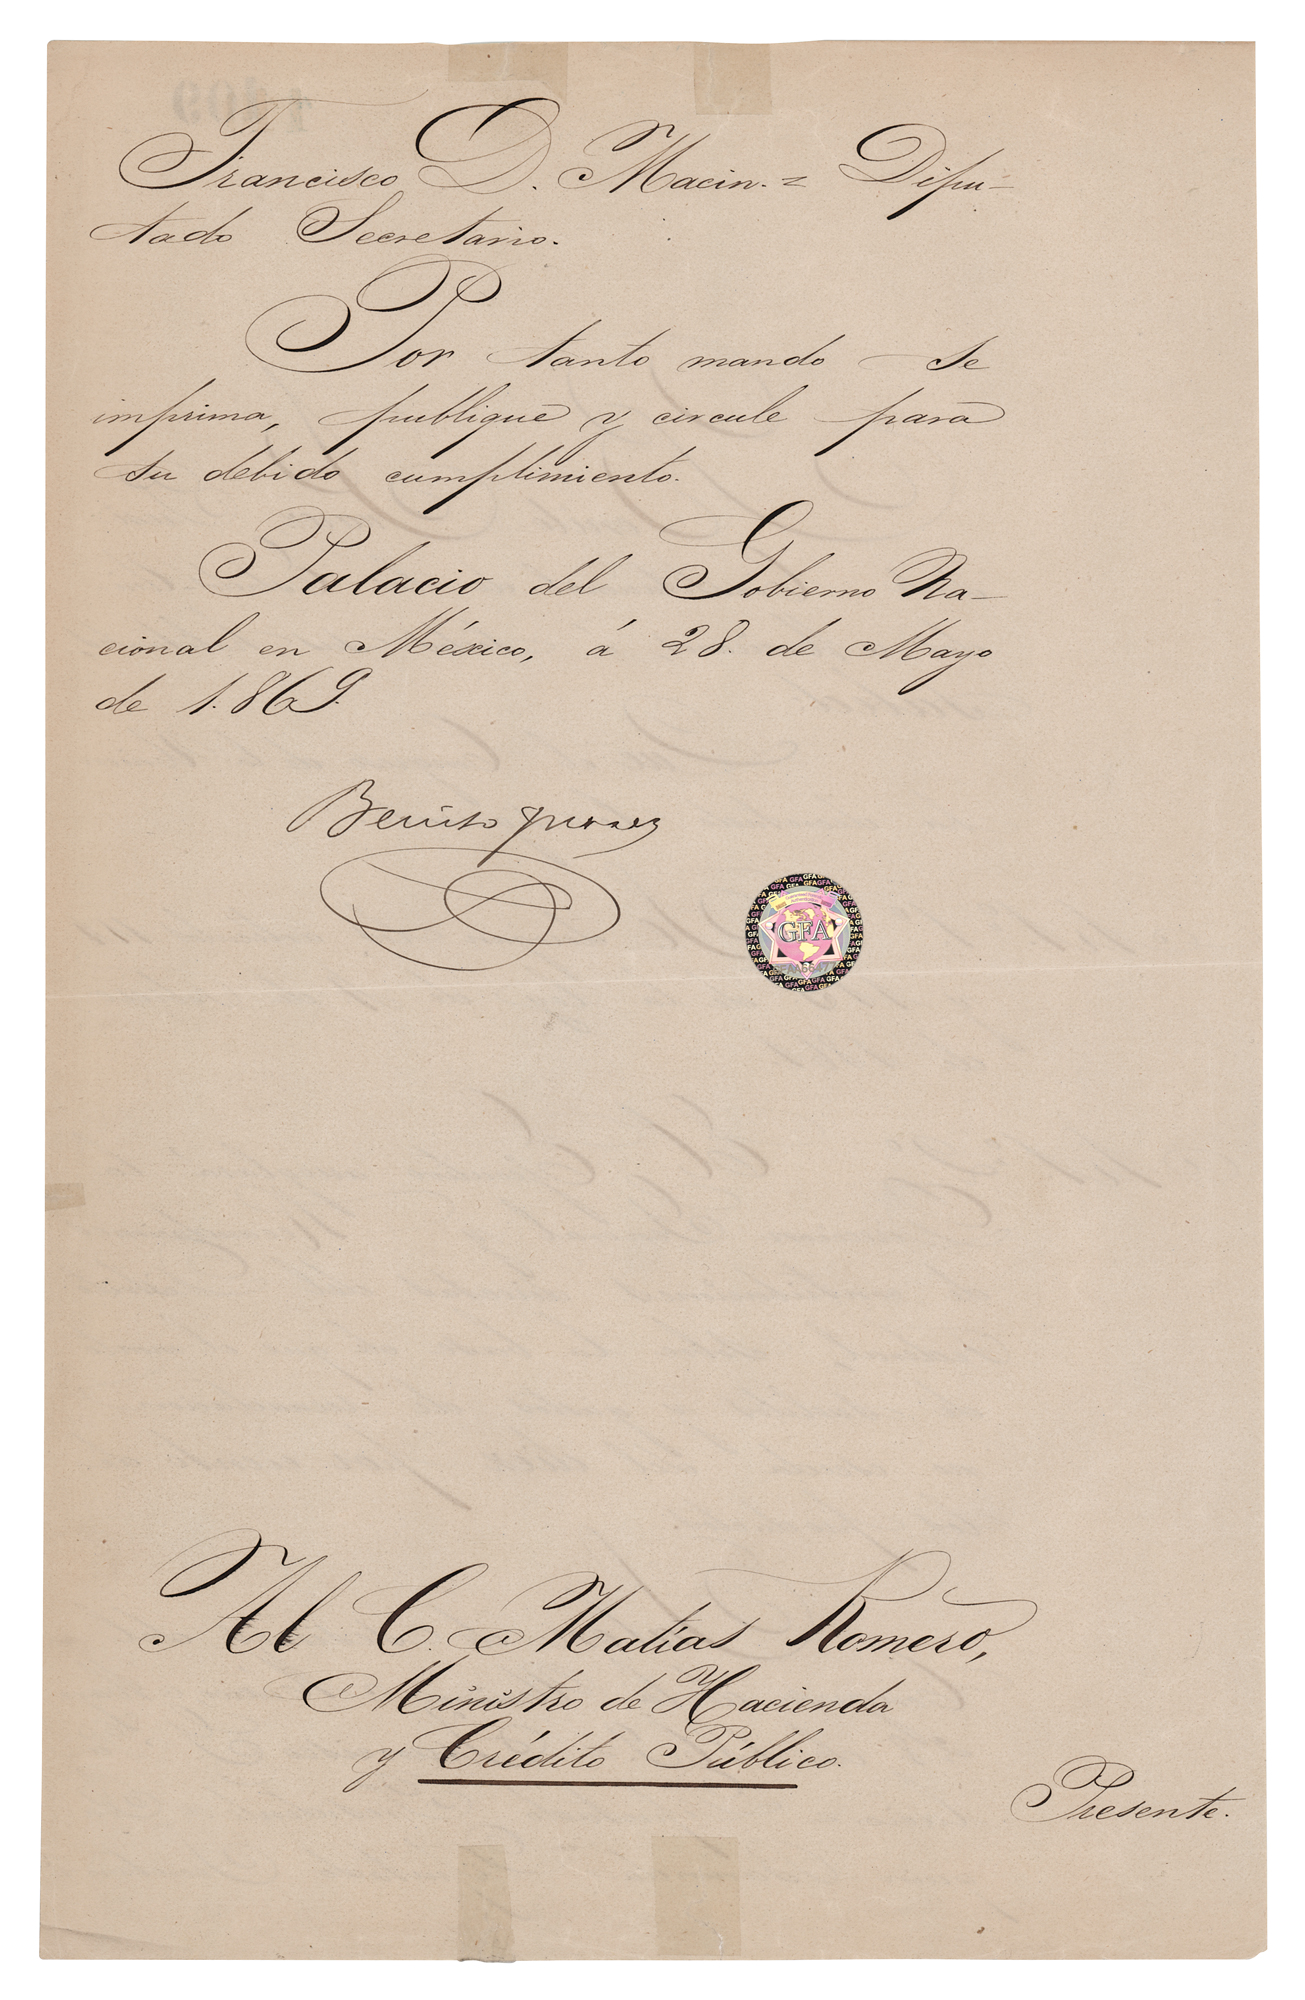 Francisco D. Macin.= Dipu-
tado Secretario.
Por tanto mando se
imprima, publique y circule para
su debido cumplimiento.
Palacio del Gobierno Na-
cional en México, á 28. de Mayo
de 1.869.
Benito Juarez
GFA
Al C. Matías Romero,
Ministro de Hacienda
y Crédito Público.
Presente.